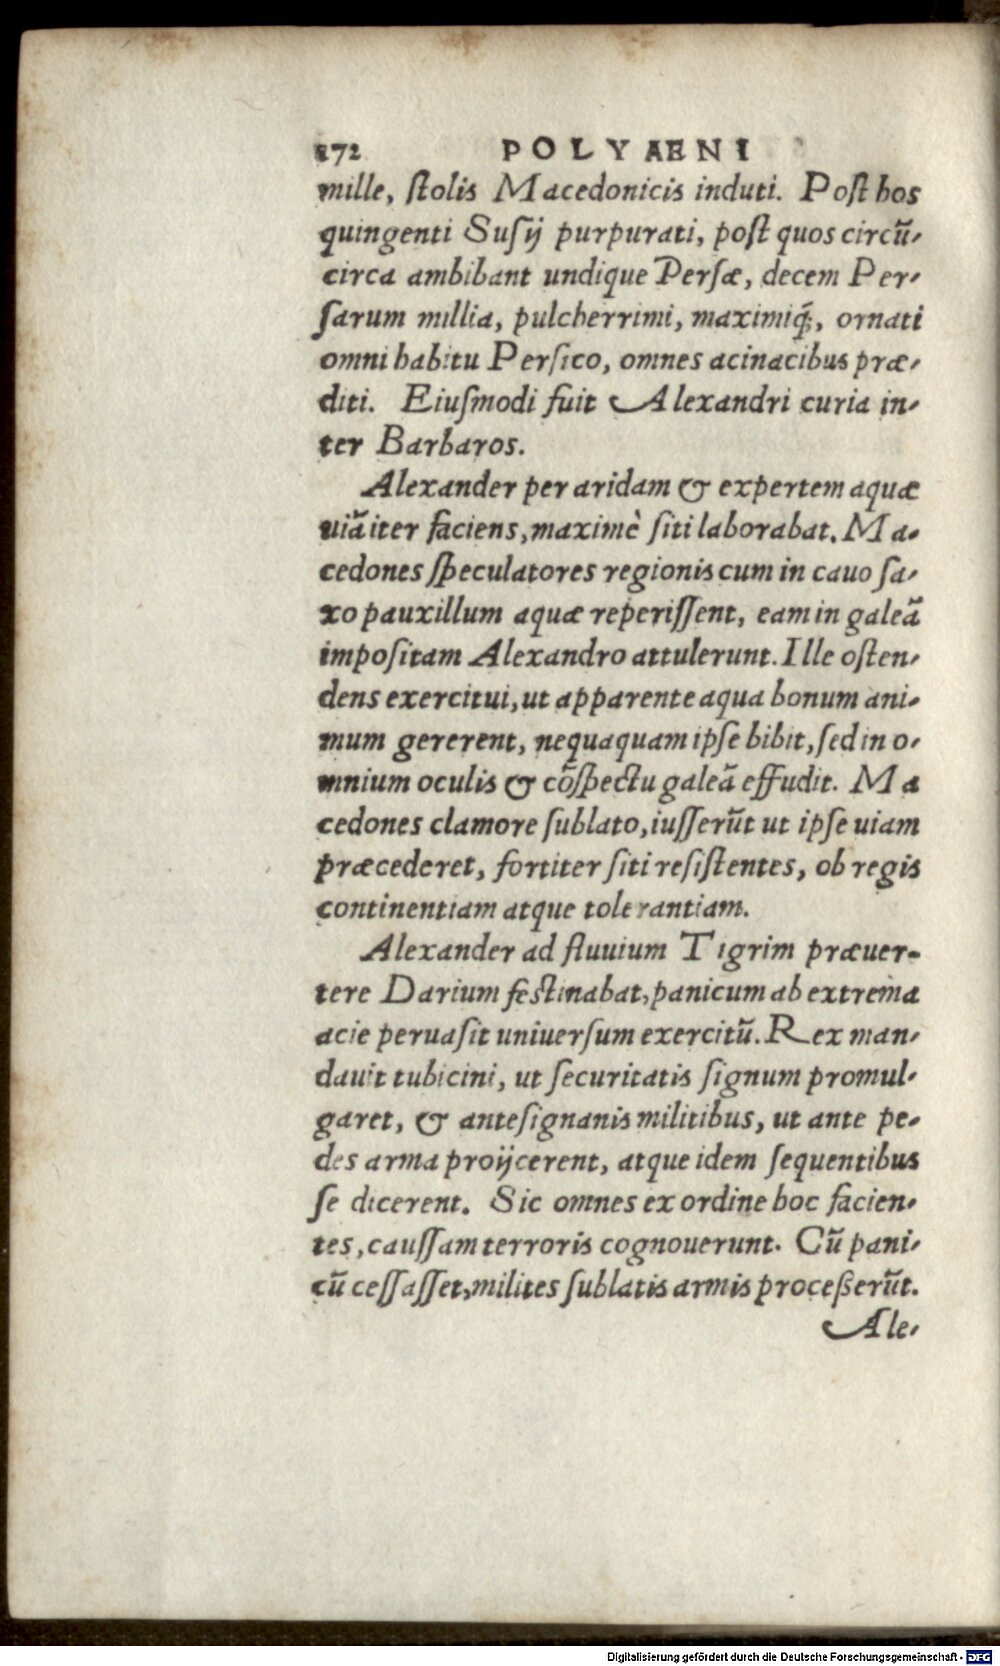 172 POLYAENI
mille, ſtolis Macedonicis induti. Poſt hos
quingenti Suſij purpurati, poſt quos circū-
circa ambibant undique Perſæ, decem Per-
ſarum millia, pulcherrimi, maximiq́;, ornati
omni habitu Perſico, omnes acinacibus præ-
diti. Eiuſmodi fuit Alexandri curia in-
ter Barbaros.
Alexander per aridam & expertem aquæ
uiā iter faciens, maximè ſiti laborabat. Ma-
cedones ſpeculatores regionis cum in cauo ſa-
xo pauxillum aquæ reperiſſent, eam in galeā
impoſitam Alexandro attulerunt. Ille oſten-
dens exercitui, ut apparente aqua bonum ani-
mum gererent, nequaquam ipſe bibit, ſed in o-
mnium oculis & cōſpectu galeā effudit. Ma
cedones clamore ſublato, iuſſerūt ut ipſe uiam
præcederet, fortiter ſiti reſiſtentes, ob regis
continentiam atque tolerantiam.
Alexander ad fluuium Tigrim præuer-
tere Darium feſtinabat, panicum ab extrema
acie peruaſit uniuerſum exercitū. Rex man-
dauit tubicini, ut ſecuritatis ſignum promul-
garet, & anteſignanis militibus, ut ante pe-
des arma proijcerent, atque idem ſequentibus
ſe dicerent. Sic omnes ex ordine hoc facien-
tes, cauſſam terroris cognouerunt. Cū pani-
cū ceſſaſſet, milites ſublatis armis proceßerūt.
Ale-
Digitalisierung gefördert durch die Deutsche Forschungsgemeinschaft - DFG